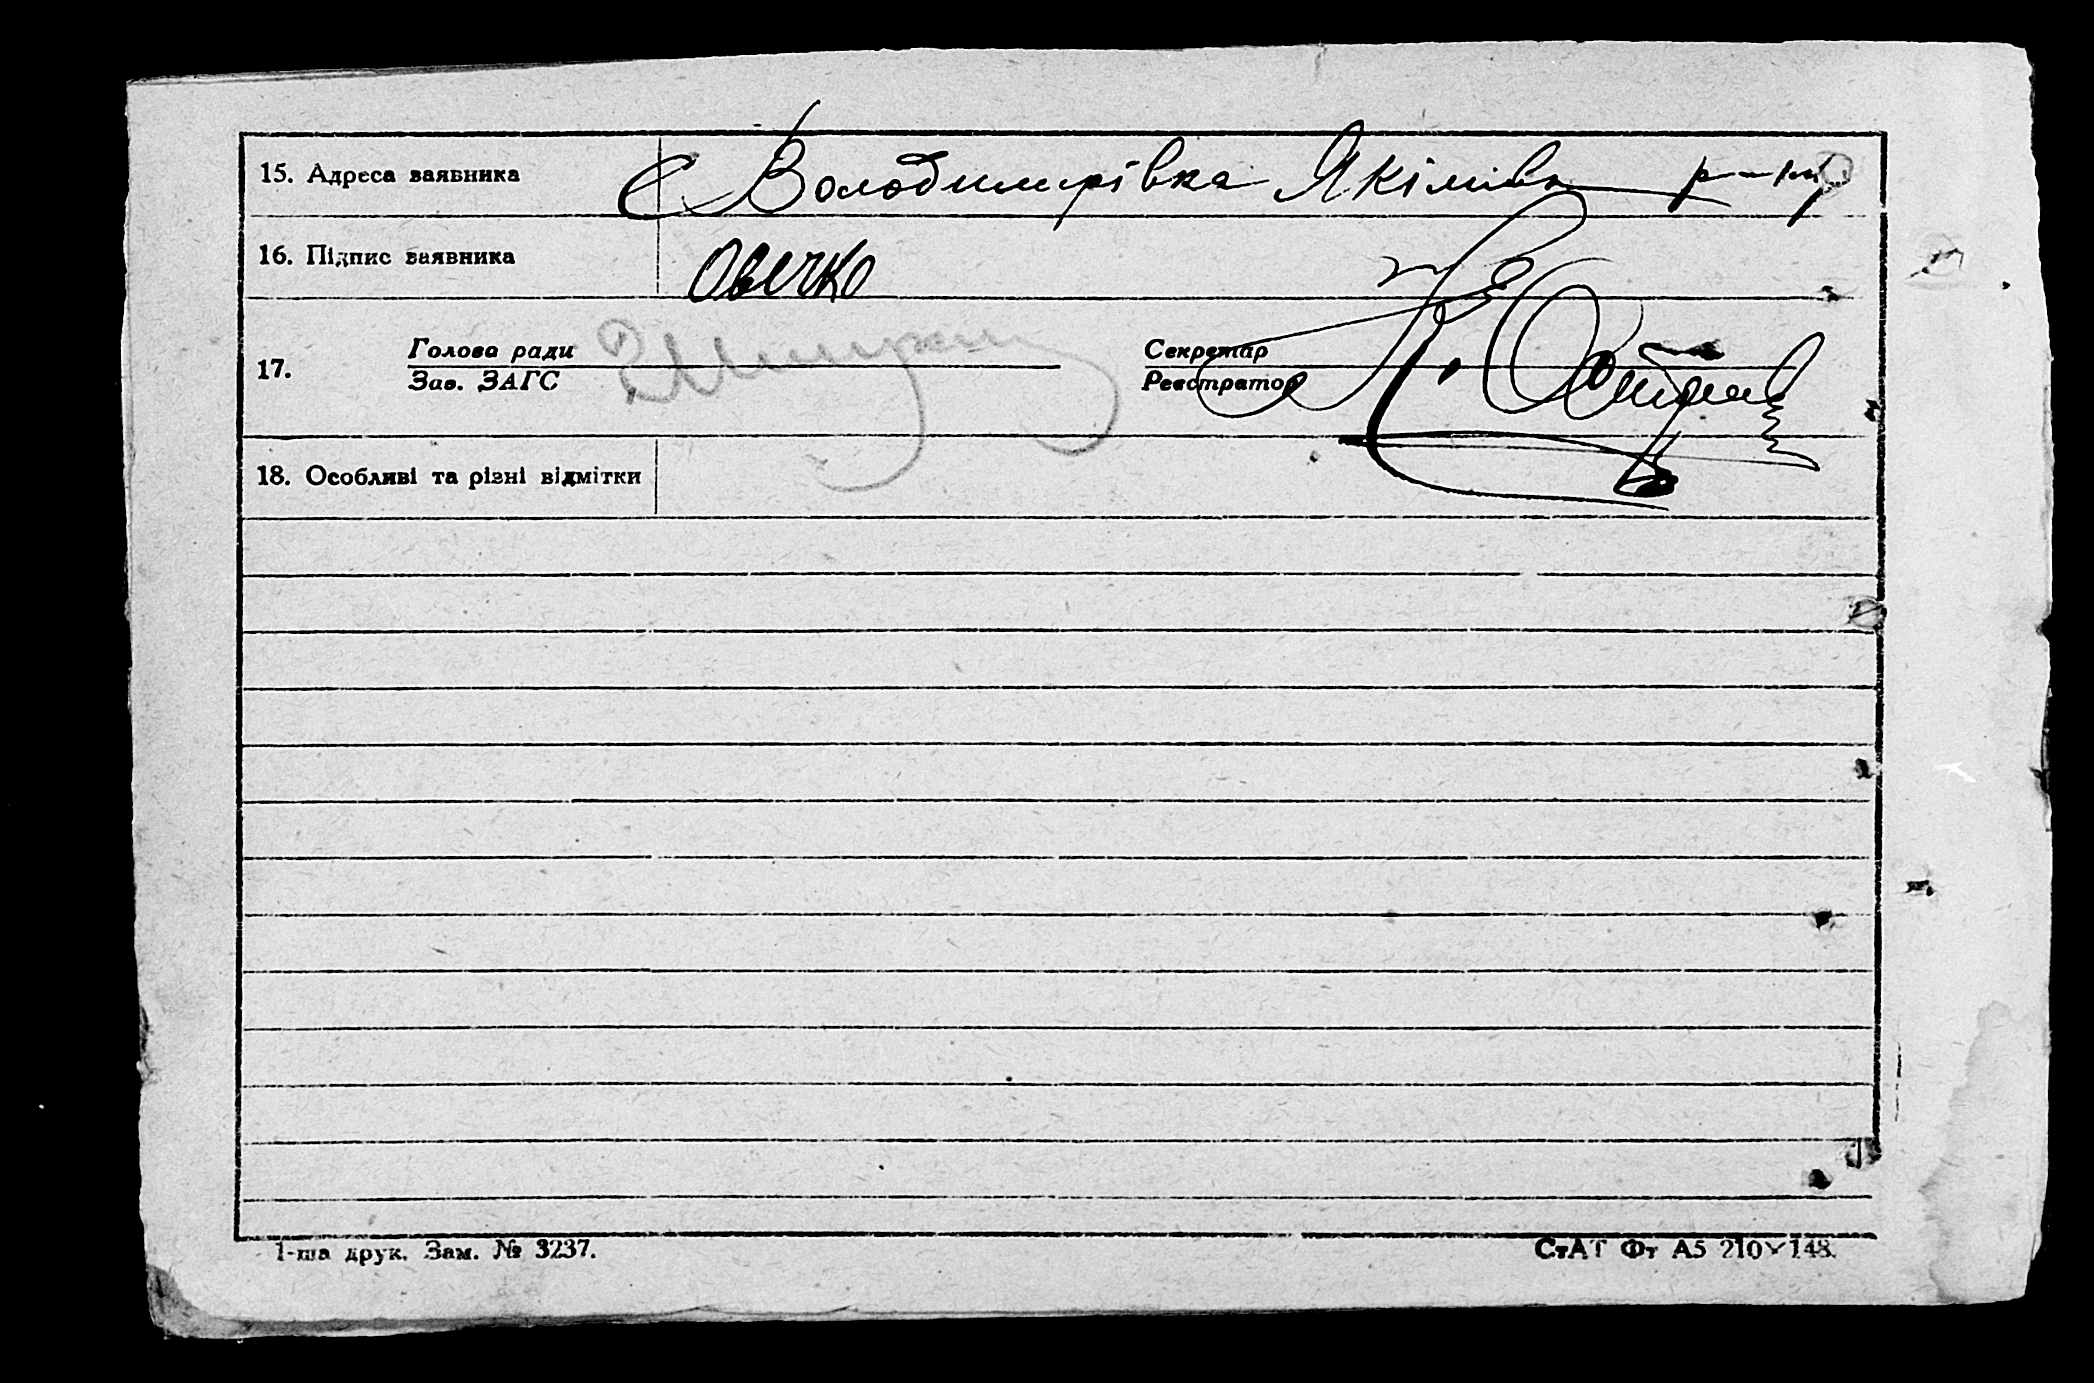 15. Адреса заявника с Володимирівка Якимівк р-ну
16. Підпис заявника Овечко
17. Голова ради Секретар
Зав. ЗАГС Реєстратор
18. Особливі та різні відмітки
1-ша друк. Зам. № 3237. СтАТ Фт А5 210×148.